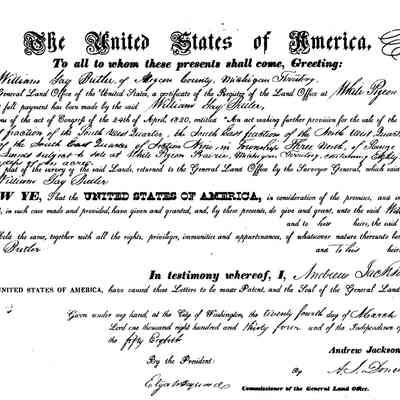 The United States of America,
To all to whom these presents shall come, Greeting:
Williams Jay Butler, of Macon County, Michigan Territory,
General Land Office of the United States, a certificate of the Register of the Land Office at White Pigeon
full payment has been made by the said William Jay Butler,
ons of the act of Congress of the 24th of April, 1820, entitled "An act making further provision for the sale of the
fraction of the South West Quarter, the South East fraction of the North West Quarter
of the South East Quarter of Section Nine, in Township Three North, of Range
Lands subject to sale at White Pigeon Prairie, Michigan Territory, containing Eighty
of an acre,
plat of the survey of the said Lands, returned to the General Land Office by the Surveyor General, which said
Williams Jay Butler
OW YE, That the UNITED STATES OF AMERICA, in consideration of the premises, and in
, in such case made and provided, have given and granted, and, by these presents, do give and grant, unto the said Wil
and to his heirs, the said
hold, the same, together with all the rights, privileges, immunities and appurtenances, of whatsoever nature thereunto b
Butler and to his heirs
In testimony whereof, I, Andrew Jacks
UNITED STATES OF AMERICA, have caused these Letters to be made Patent, and the Seal of the General Land
Given under my hand, at the City of Washington, the twenty fourth day of March
Lord one thousand eight hundred and thirty four and of the Independence of
the fifty Eighth
By the President: Andrew Jackson
By A. J. Done
Elijah Hayward Commissioner of the General Land Office.